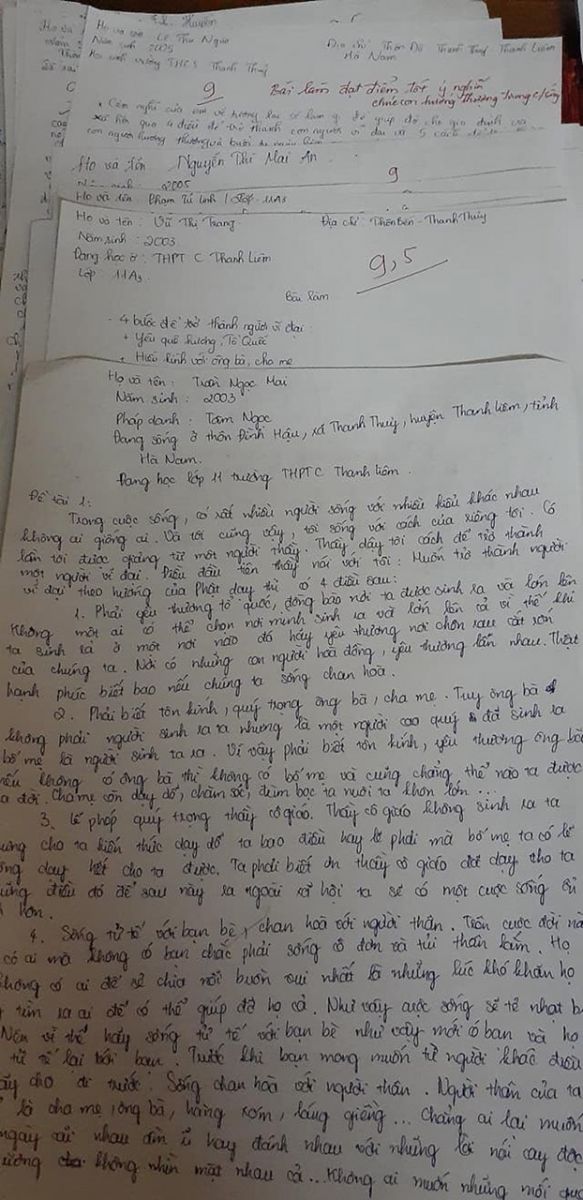 Huyền
Họ và
Họ và tên Lê Thu Ngân
Địa chỉ Thôn Đồ Thanh Thuỷ Thanh Liêm
Năm sinh 2005
Hà Nam
Học sinh trường THCS Thanh Thuỷ
9
Bài làm đạt điểm tốt ý nghĩa
Họ và tên Nguyễn Thị Mai An
9
2005
Họ và tên Phạm Tú Linh / Lớp 11A3
Họ và tên : Vũ Thị Trang
Địa chỉ : Thôn Bến - Thanh Thuỷ
Năm sinh : 2003
Đang học ở : THPT C Thanh Liêm
9,5
Lớp : 11A3
Bài làm
- 4 bước để trở thành người vĩ đại :
+ Yêu quê hương, Tổ Quốc
+ Hiếu kính với ông bà, cha mẹ
Họ và tên : Trần Ngọc Mai
Năm sinh : 2003
Pháp danh : Tâm Ngọc
Đang sống ở thôn Đình Hậu, xã Thanh Thuỷ, huyện Thanh Liêm, tỉnh
Hà Nam.
Đang học lớp 11 trường THPT C Thanh Liêm .
Đề tài 1:
Trong cuộc sống, có rất nhiều người sống với nhiều kiểu khác nhau
không ai giống ai. Và tôi cũng vậy, tôi sống với cách của riêng tôi. Có
lần tôi được giảng từ một người thầy. Thầy dạy tôi cách để trở thành
một người vĩ đại. Điều đầu tiên thầy nói với tôi: Muốn trở thành người
vĩ đại theo hướng của Phật dạy thì có 4 điều sau:
1. Phải yêu thương tổ quốc, đồng bào nơi ta được sinh ra và lớn lên
Không một ai có thể chọn nơi mình sinh ra và lớn lên cả vì thế khi
ta sinh ra ở một nơi nào đó hãy yêu thương nơi chôn rau cắt rốn
của chúng ta. Nơi có những con người hoà đồng, yêu thương lẫn nhau. Thật
hạnh phúc biết bao nếu chúng ta sống chan hoà.
2. Phải biết tôn kính, quý trọng ông bà, cha mẹ. Tuy ông bà
không phải người sinh ra ta nhưng là một người cao quý đã sinh ra
bố mẹ là người sinh ta ra. Vì vậy phải biết tôn kính, yêu thương ông bà
nếu không có ông bà thì không có bố mẹ và cũng chẳng thể nào ta được
ra đời. Cha mẹ còn dạy dỗ, chăm sóc, đùm bọc ta nuôi ta khôn lớn ...
3. Lễ phép quý trọng thầy cô giáo. Thầy cô giáo không sinh ra ta
nhưng cho ta kiến thức dạy dỗ ta bao điều hay lẽ phải mà bố mẹ ta có lẽ
không dạy hết cho ta được. Ta phải biết ơn thầy cô giáo đã dạy cho ta
những điều đó để sau này ra ngoài xã hội ta sẽ có một cuộc sống
hơn.
4. Sống tử tế với bạn bè, chan hoà với người thân. Trên cuộc đời này
có ai mà không có bạn chắc phải sống cô đơn và tủi thân lắm. Họ
không có ai để sẻ chia nỗi buồn vui nhất là những lúc khó khăn họ
tìm ra ai để có thể giúp đỡ họ cả. Như vậy cuộc sống sẽ tẻ nhạt
Nên vì thế hãy sống tử tế với bạn bè như vậy mới có bạn và họ
tử tế lại với bạn. Trước khi bạn mong muốn từ người khác điều
hãy cho đi trước. Sống chan hoà với người thân. Người thân của ta
là cha mẹ, ông bà, hàng xóm, láng giềng ... Chẳng ai lại muốn
ngày cãi nhau ầm ĩ hay đánh nhau với những lời nói cay độc
không nhìn mặt nhau cả ... Không ai muốn những mối